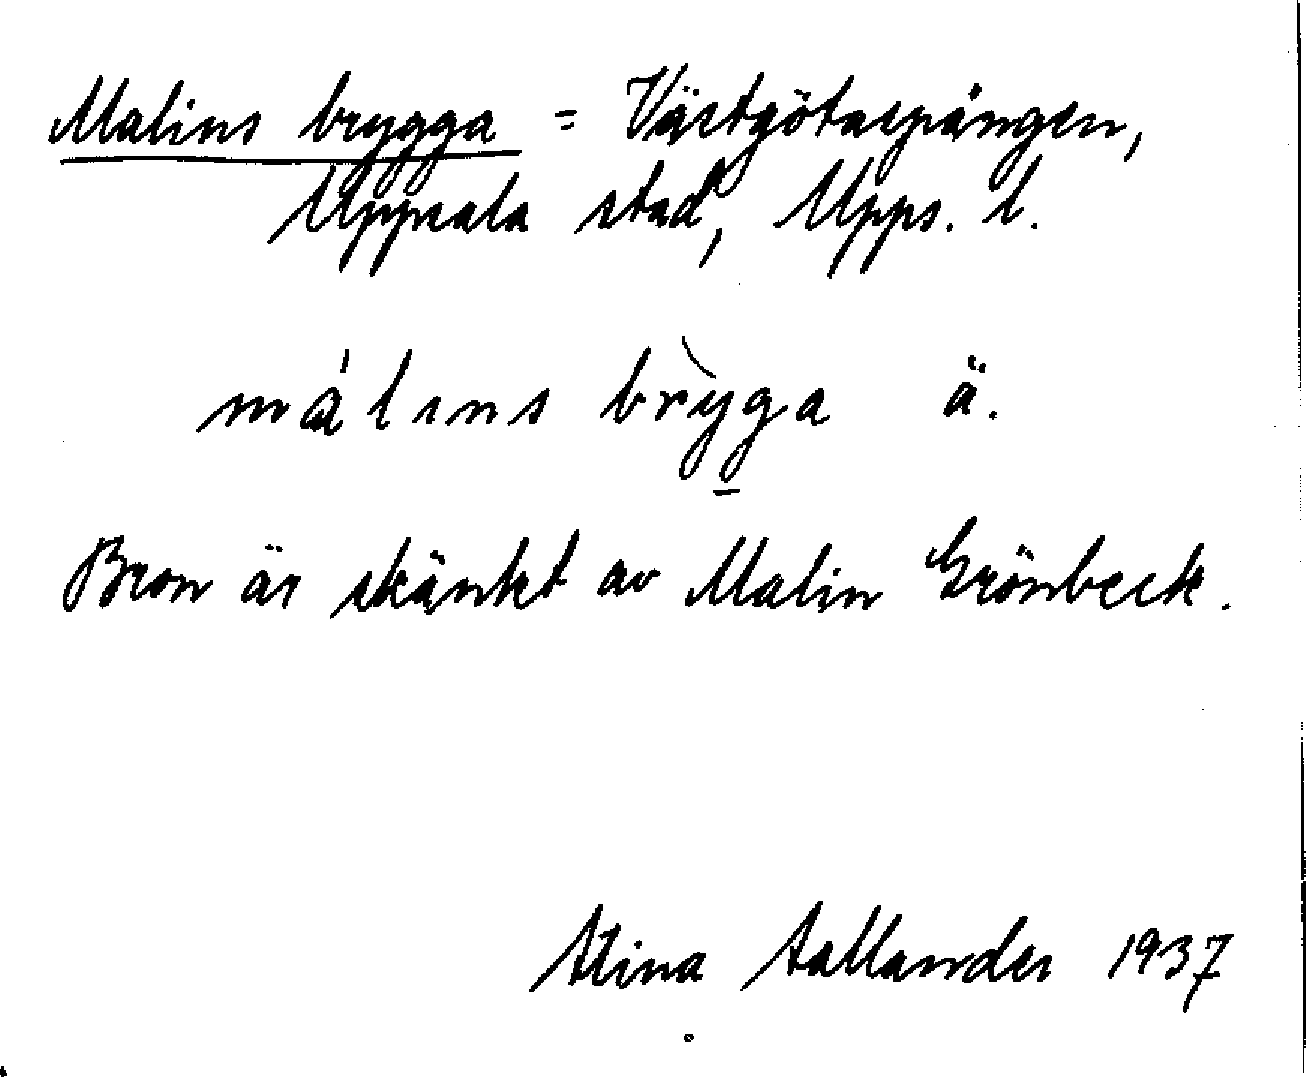 Malins brygga = Västgötaspången,
Uppsala stad, Upps. l.
málıns brỳga ä.
Bron är skänkt av Malin Grönbeck.
Stina Sallander 1937